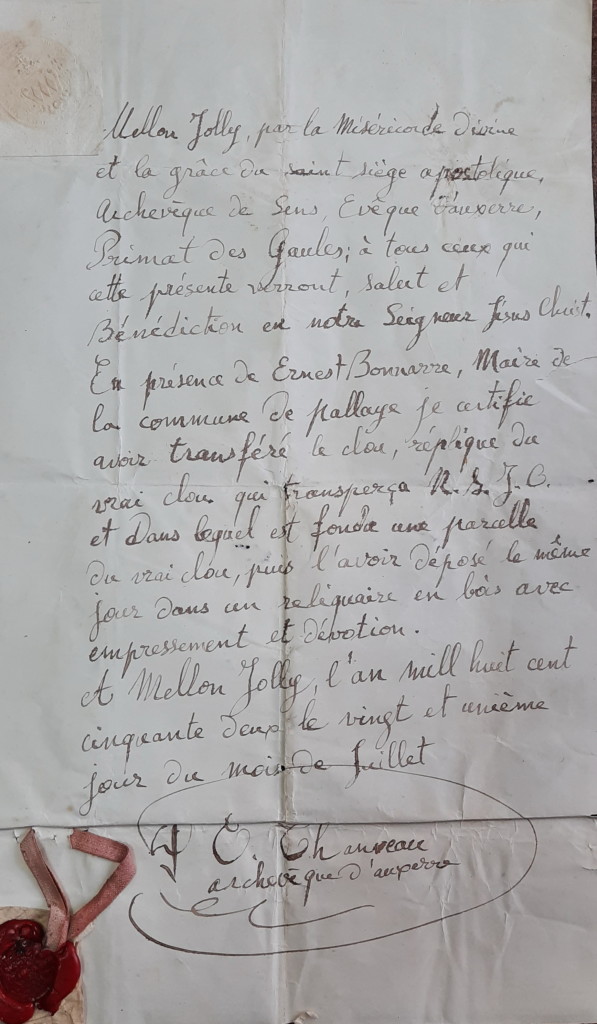 Mellon Jolly, par la Miséricorde divine
et la grâce du saint siège apostolique,
Archevêque de Sens, Evêque d'auxerre,
Primat des Gaules; à tous ceux qui
cette présente verront, salut et
Bénédiction en notre Seigneur Jésus Christ.
En présence de Ernest Bonnarre, Maire de
la commune de pallaye je certifie
avoir transféré le clou, réplique du
vrai clou qui transperça N. S. J. C.
et Dans lequel est fondu une parcelle
du vrai clou, puis l'avoir déposé le même
jour dans un reliquaire en bois avec
empressement et dévotion.
A Mellon Jolly, l'an mill huit cent
cinquante deux le vingt et unième
jour du mois de Juillet
E. Chauveau
archevêque d'auxerre